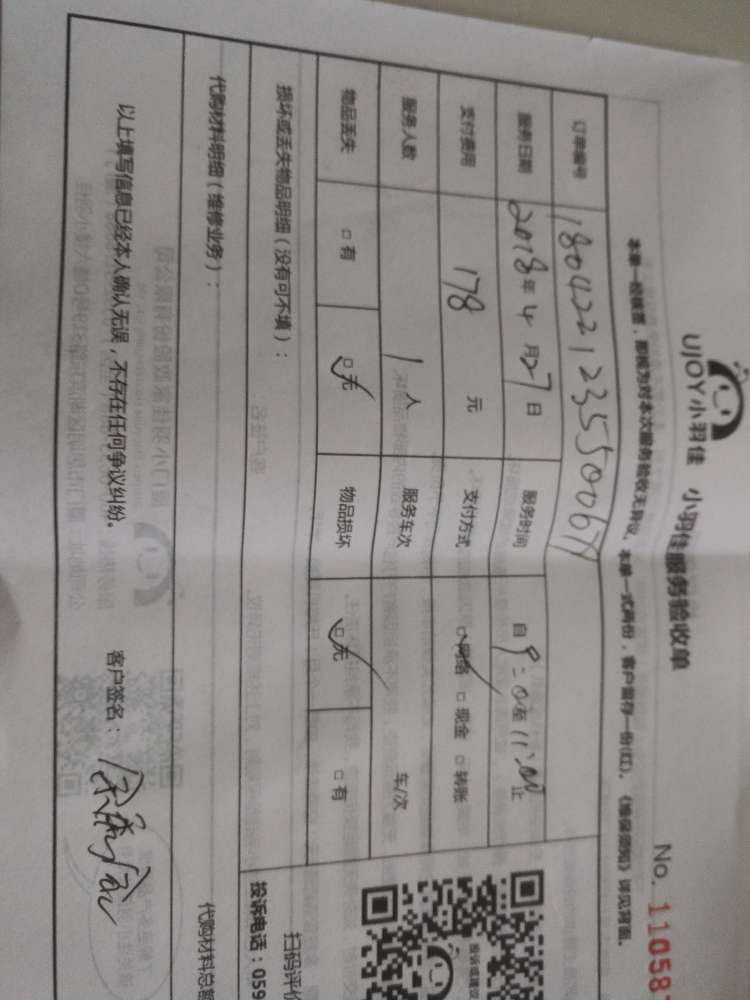 UJOY小羽佳 小羽佳服务验收单 No. 11058
本单一经核签，即视为对本次服务验收无异议。本单一式两份，客户留存一份(红)。《维保须知》详见背面。
订单编号 180422123550067
服务日期 2018年4月27日 服务时间 自9:0至11:00止
支付费用 178 元 支付方式 □网络 □现金 □转账
服务人数 1 人 服务车次 车/次
物品丢失 □有 □无 物品损坏 □无 □有
损坏或丢失物品明细（没有可不填）：
代购材料明细（维修业务）：
代购材料总
以上填写信息已经本人确认无误，不存在任何争议纠纷。 客户签名：
扫码评价
投诉电话：059